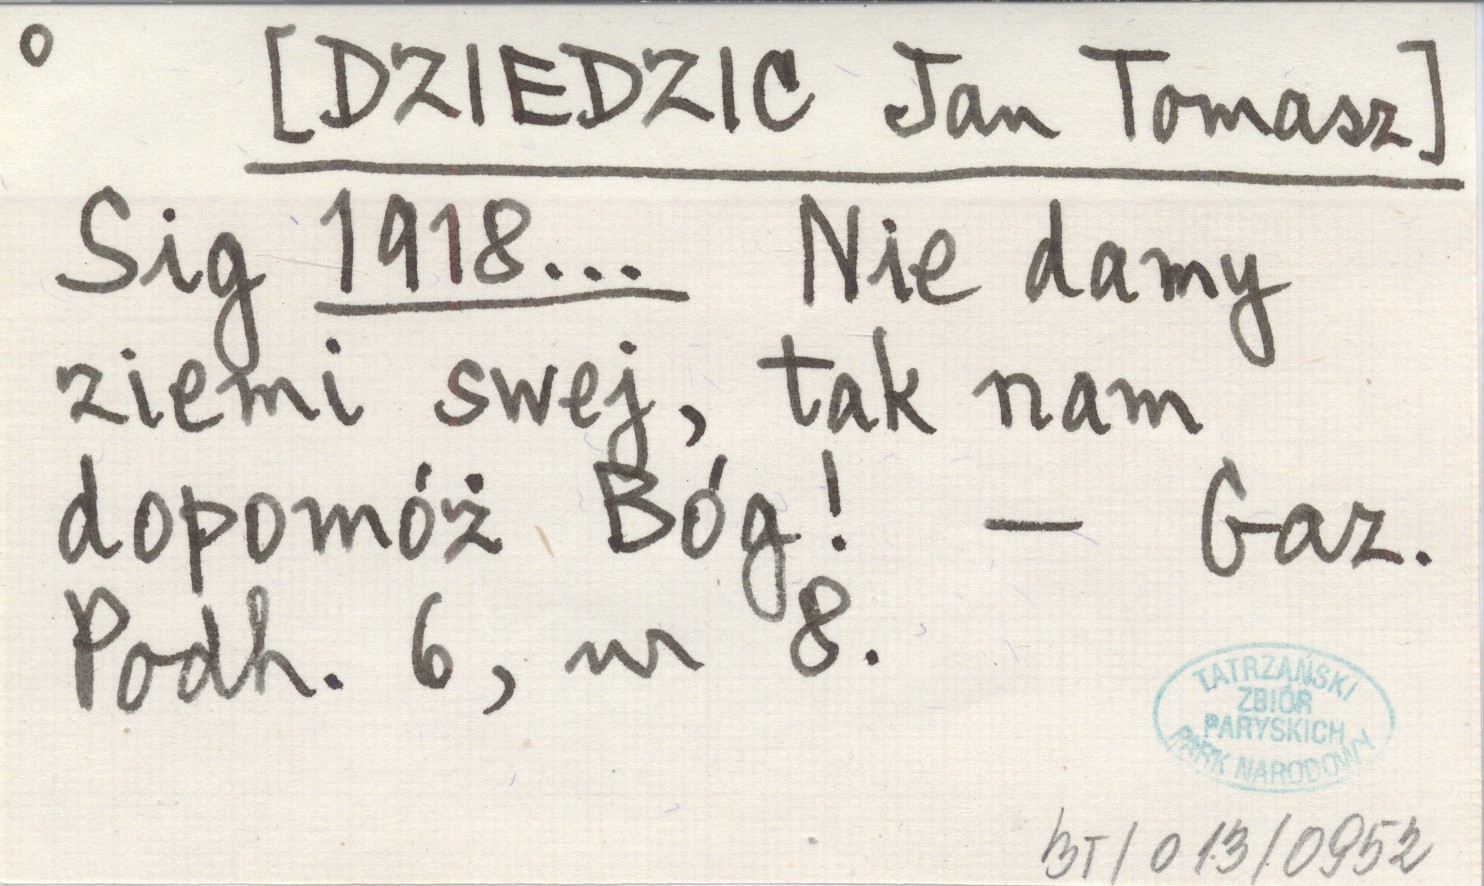 ° [DZIEDZIC Jan Tomasz]
Sig 1918... Nie damy
ziemi swej, tak nam
dopomóż Bóg! — Gaz.
Podh. 6, nr 8.
TATRZAŃSKI
ZBIÓR
PARYSKICH
PARK NARODOWY
BT/013/0952